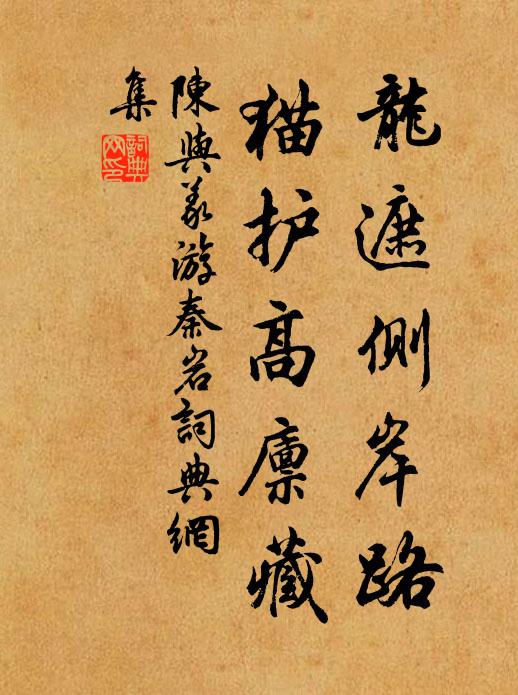 龍遮側岸路
猫护高廪藏
陳與义游秦岩詞典網
集
詞典網印